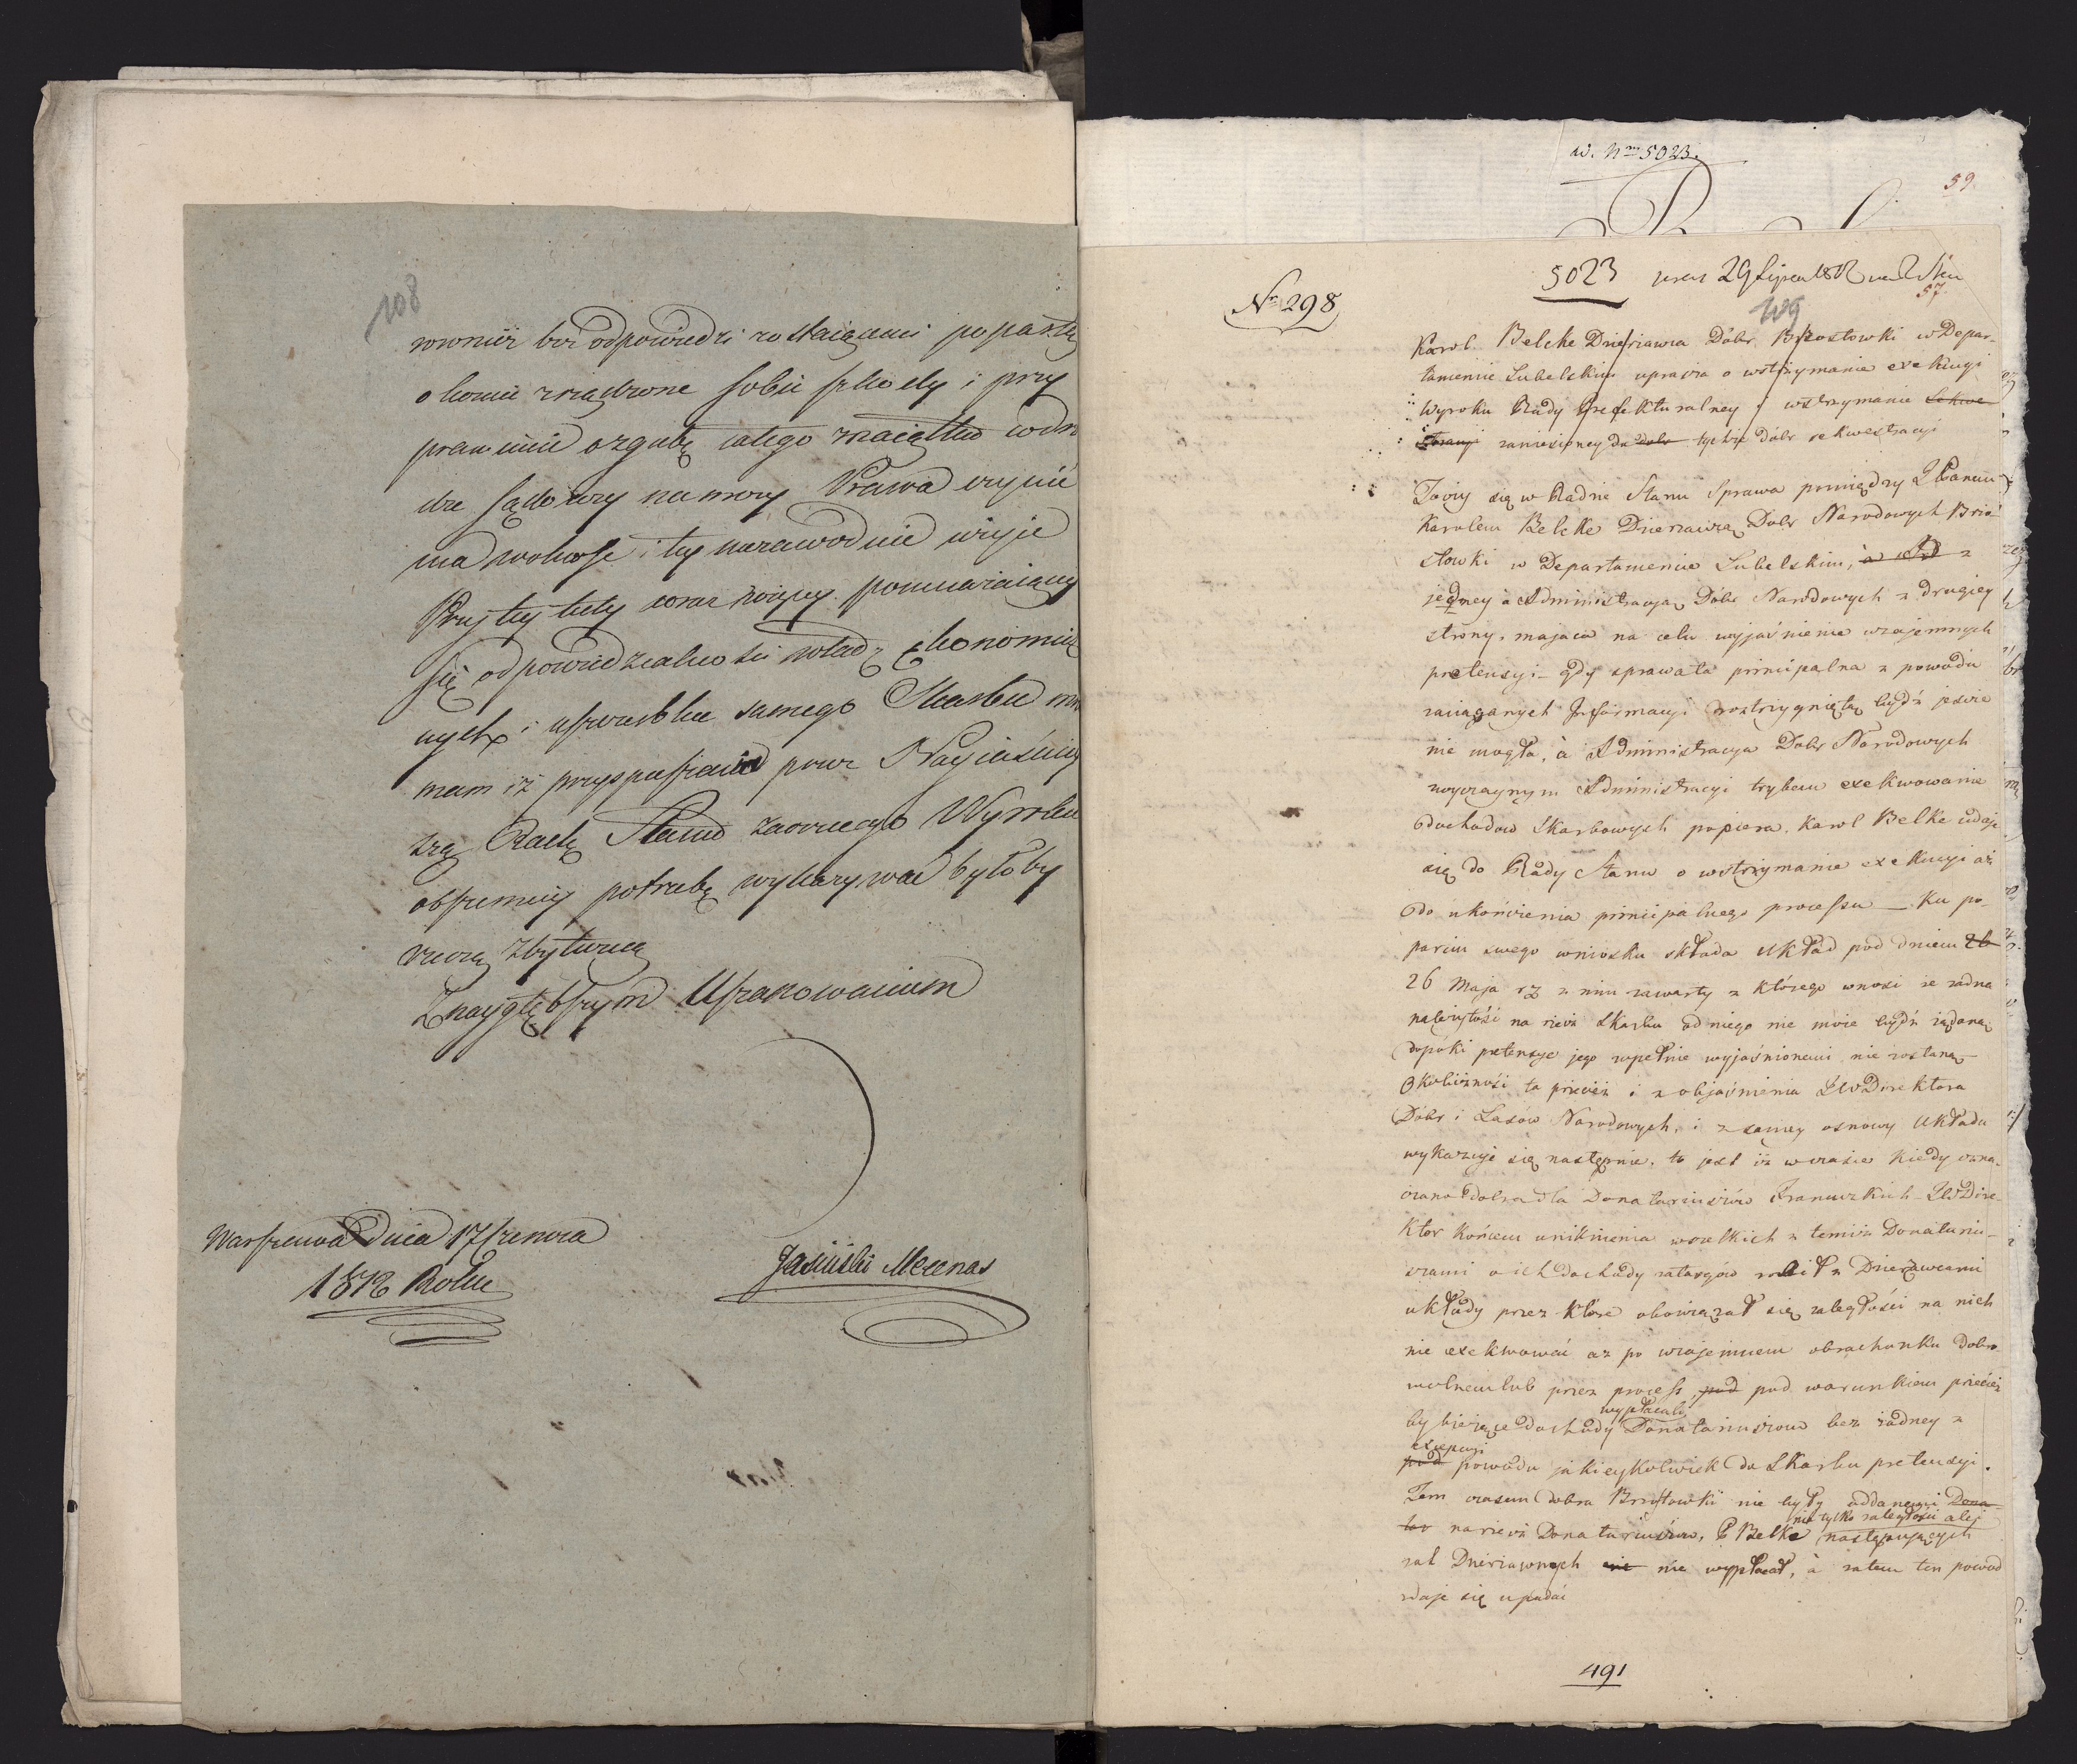 108
rownież bez odpowiedzi zostaiącemi poparte
o komie zrządzone sobie szkody i przy
prawienie o zgubę całego maiątku w dro
dze sądowey na mocy Prawa czynić
ma wolność i tey niezawodnie użyie
Przy tey tedy coraz więcey pomnażaiącey
się odpowiedzialności władz ekonomicz
nych i uszczerbku samego Skarbu mn
mam iż przyspieszenia przez Nayiaśniey
szą Radę Stanu zaocznego Wyroku
obszerniey potrzebę wykazywać byłoby
rzeczą zbyteczną
Z naygłębszym Uszanowaniem
Warszawa Dnia 17 Czerwca
1812 Roku
Jasiński Mecenas
w. Nro 5023.
59.
Nr 298
5023 29 Lipca 1812
57.
109
Karol Belcke Dzierżawca Dóbr Brzostowki w Depar-
tamencie Lubelskim uprasza o wstrzymanie exekucyi
Wyroku Rady Prefekturalney i wstrzymanie sekwe-
stracyi zaniesioney do dobr tychże dóbr sekwestracyi
Toczy się w Radzie Stanu Sprawa pomiędzy JPanem
Karolem Belcke Dzierzawcą Dobr Narodowych Brzo-
stowki w Departamencie Lubelskim, z
jedney a Administracyą Dóbr Narodowych z drugiey
strony, mająca na celu wyjaśnienie wzajemnych
pretensyi - gdy sprawa ta principalna z powodu
zaciąganych Informacyi rozstrzygniętą bydź jeszcze
nie mogła, à Administracya Dobr Narodowych
zwyczaynym Administracyi trybem exekwowanie
dochodow Skarbowych popiera, Karol Belke udaje
się do Rady Stanu o wstrzymanie exekucyi aż
do ukończenia principalnego processu — Ku po-
parciu swego wniosku składa Układ pod dniem 26
26 Maja rz z nim zawarty z którego wnosi że żadna
należytość na rzecz Skarbu od niego nie może bydź żądaną
dopóki pretensye jego zupełnie wyjaśnionemi nie zostaną —
Okoliczność ta przecież i z objaśnienia JW Direktora
Dóbr i Lasów Narodowych, i z samey osnowy Układu
wykazuje się następnie, to jest iż w czasie kiedy ozna-
czano dobra dla Donataryuszów Francuzkich - JW Dire-
ktor końcem uniknienia wszelkich z temiż Donatariu-
szami o ich dochody zatargów robił z Dzierżawcami
układy przez które obowiązał się zaległości na nich
nie exekwować aż po wzajemnem obrachunku dobro-
wolnem lub przez process, pod pod warunkiem przecież
wypłacali
by bieżące dochody Donatariuszow bez żadney z
excepcyi
pod powodu jakieykolwiek do Skarbu pretensyi.
Tem czasem dobra Brzostowki nie były oddanemi Dona-
nie tylko zaległości ale i
tar na rzecz Donatariuszów, P Belke następujących
rat Dzierżawnych nie nie wypłacał, à zatem ten powod
zdaje się upadać
491